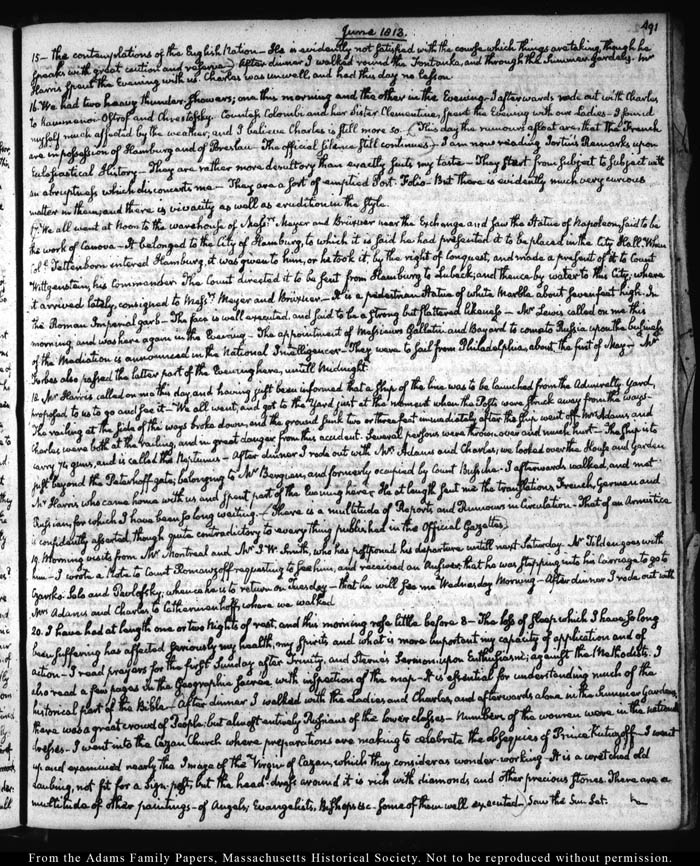 June 1813.
491
15 — the contemplations of the English Nation — He is evidently not satisfied with the course which things are taking, though he
speaks with great caution and reserve) After dinner I walked round the Fontanka, and through the Summer Gardens. Mr
Harris spent the Evening with us. Charles was unwell and had this day no lesson.
16. We had two heavy thunder-showers; one this morning and the other in the Evening — I afterwards rode out with Charles
to Kammenoi-Ostrof and Chrestofsky. Countess Colombi and her Sister Clementine, spent the Evening with our Ladies — I found
myself much affected by the weather, and I believe Charles is still more so — (This day the rumours afloat are, that the French
are in possession of Hamburg and of Breslau — The official silence still continues) — I am now reading Jortin's Remarks upon
Ecclesiastical History — They are rather more desultory than exactly suits my taste — They start from subject to subject with
an abruptness which disconcerts me — They are a sort of emptied Port-Folio — But there is evidently much very curious
matter in them, and there is vivacity as well as erudition in the Style.
17. We all went at Noon to the warehouse of Messrs Meyer and Brüxner near the Exchange and saw the Statue of Napoleon, said to be
the work of Canova — It belonged to the City of Hamburg, to which it is said he had presented it to be placed in the City Hall. When
Coll. Tettenborn entered Hamburg, it was given to him, or he took it, by the right of Conquest, and made a present of it to Count
Wittgenstein, his Commander. The Count directed it to be sent from Hamburg to Lubeck, and thence by water to this City, where
it arrived lately, consigned to Messrs Meyer and Brüxner — It is a pedestrian Statue of white Marble about seven feet high. In
the Roman Imperial garb — The face is well executed, and said to be a strong but flattered likeness — Mr Lewis called on me this
morning, and was here again in the Evening — The appointment of Messieurs Gallatin and Bayard to come to Russia upon the business
of the Mediation is announced in the National Intelligencer — They were to sail from Philadelphia, about the first of May) — Mr
Forbes also passed the latter part of the Evening here, untill Midnight.
18. Mr Harris called on me this day, and having just been informed that a Ship of the line was to be launched from the Admiralty Yard,
proposed to us to go and see it — We all went, and got to the Yard, just at the moment when the Posts were struck away from the ways —
The railing at the side of the ways broke down, and the ground sunk two or three feet immediately after the ship went off — Mrs Adams and
Charles were both at the railing, and in great danger from this accident. Several persons were thrown over and much hurt — The Ship is to
carry 74 guns, and is called the Neptunus — After dinner I rode out with Mrs Adams and Charles; we looked over the House and Garden
just beyond the Peterhoff-gate; belonging to Mr Bergien, and formerly occupied by Count Bussche. I afterwards walked, and met
Mr Harris who came home with us and spent part of the Evening here. He at length sent me the translations French, German and
Russian, for which I have been so long waiting. (There is a multitude of Reports and Rumours in circulation — That of an Armistice
is confidently asserted, though quite contradictory to every thing published in the Official Gazettes)
19. Morning visits from Mr Montreal and Mr I. W. Smith, who has postponed his departure untill next Saturday — Mr Tilden goes with
him — I wrote a Note to Count Romanzoff requesting to see him, and received an Answer, that he was stepping into his Carriage to go to
Czarko-Selo and Pavlofsky, whence he is to return on Tuesday — that he will see me Wednesday Morning — After dinner I rode out with
Mrs Adams and Charles to Catherinenhoff, where we walked.
20. I have had at length one or two Nights of rest, and this morning rose little before 8 — The loss of sleep which I have so long
been suffering has affected seriously my health, my spirits and what is more important my capacity of application and of
action — I read prayers for the first Sunday after Trinity, and Sterne's Sermon upon Enthusiasm; against the Methodists. I
also read a few pages in the Geographia Sacra, with inspection of the map — It is essential for understanding much of the
historical part of the Bible — After dinner I walked with the Ladies and Charles, and afterwards alone in the Summer Gardens,
there was a great crowd of People; but almost entirely Russians of the lower classes — Numbers of the women were in the national
dresses — I went into the Cazan Church where preparations are making to celebrate the obsequies of Prince Kutuzoff — I went
up and examined nearly the Image of the Virgin of Cazan, which they consider as wonder-working — It is a wretched old
daubing, not fit for a Sign-post, but the head-dress around it is rich with diamonds and other precious stones. There are a
multitude of other paintings — of Angels, Evangelists, Bishops &c — some of them well executed) Saw the Sun Set.
From the Adams Family Papers, Massachusetts Historical Society. Not to be reproduced without permission.